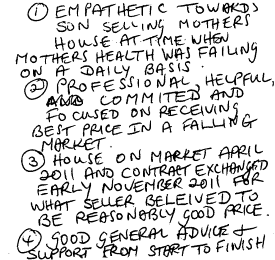 ① EMPATHETIC TOWARDS
SON SELLING MOTHERS
HOUSE AT TIME WHEN
MOTHERS HEALTH WAS FAILING
ON A DAILY BASIS.
② PROFESSIONAL, HELPFUL,
AND COMMITED AND
FOCUSED ON RECEIVING
BEST PRICE IN A FALLING
MARKET.
③ HOUSE ON MARKET APRIL
2011 AND CONTRACT EXCHANGED
EARLY NOVEMBER 2011 FOR
WHAT SELLER BELEIVED TO
BE REASONABLY GOOD PRICE.
④ GOOD GENERAL ADVICE &
SUPPORT FROM START TO FINISH